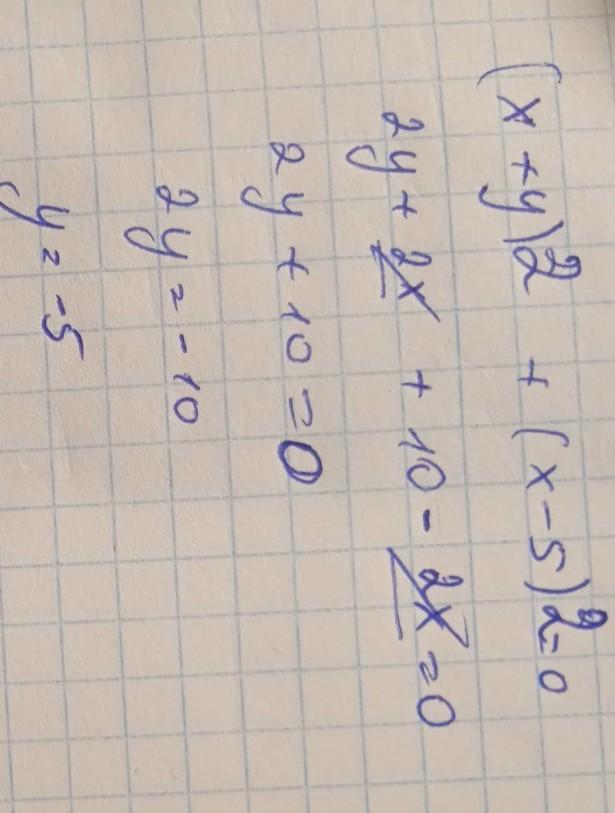 (x+y)2 + (x-5)2=0
2y+2x + 10-2x=0
2y+10=0
2y=-10
y=-5